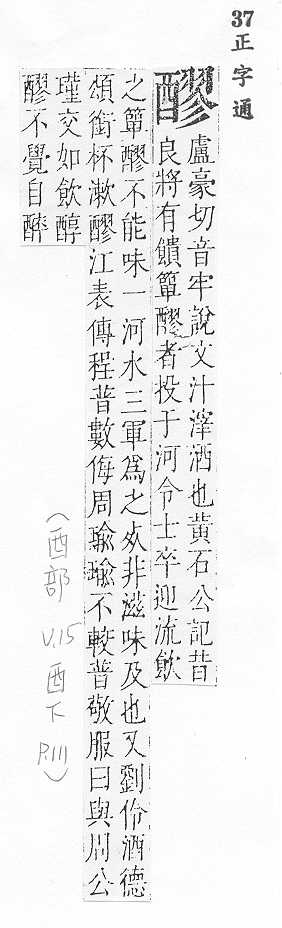 37正字通
醪
盧豪切音牢說文汁滓酒也黃石公記昔
良將有饋簞醪者投于河令士卒迎流飲
之簞醪不能味一河水三軍爲之死非滋味及也又劉伶酒德
頌銜杯漱醪江表傳程普數侮周瑜瑜不較普敬服曰與周公
瑾交如飲醇
醪不覺自醉
(酉部 V.15 酉下 P.111)